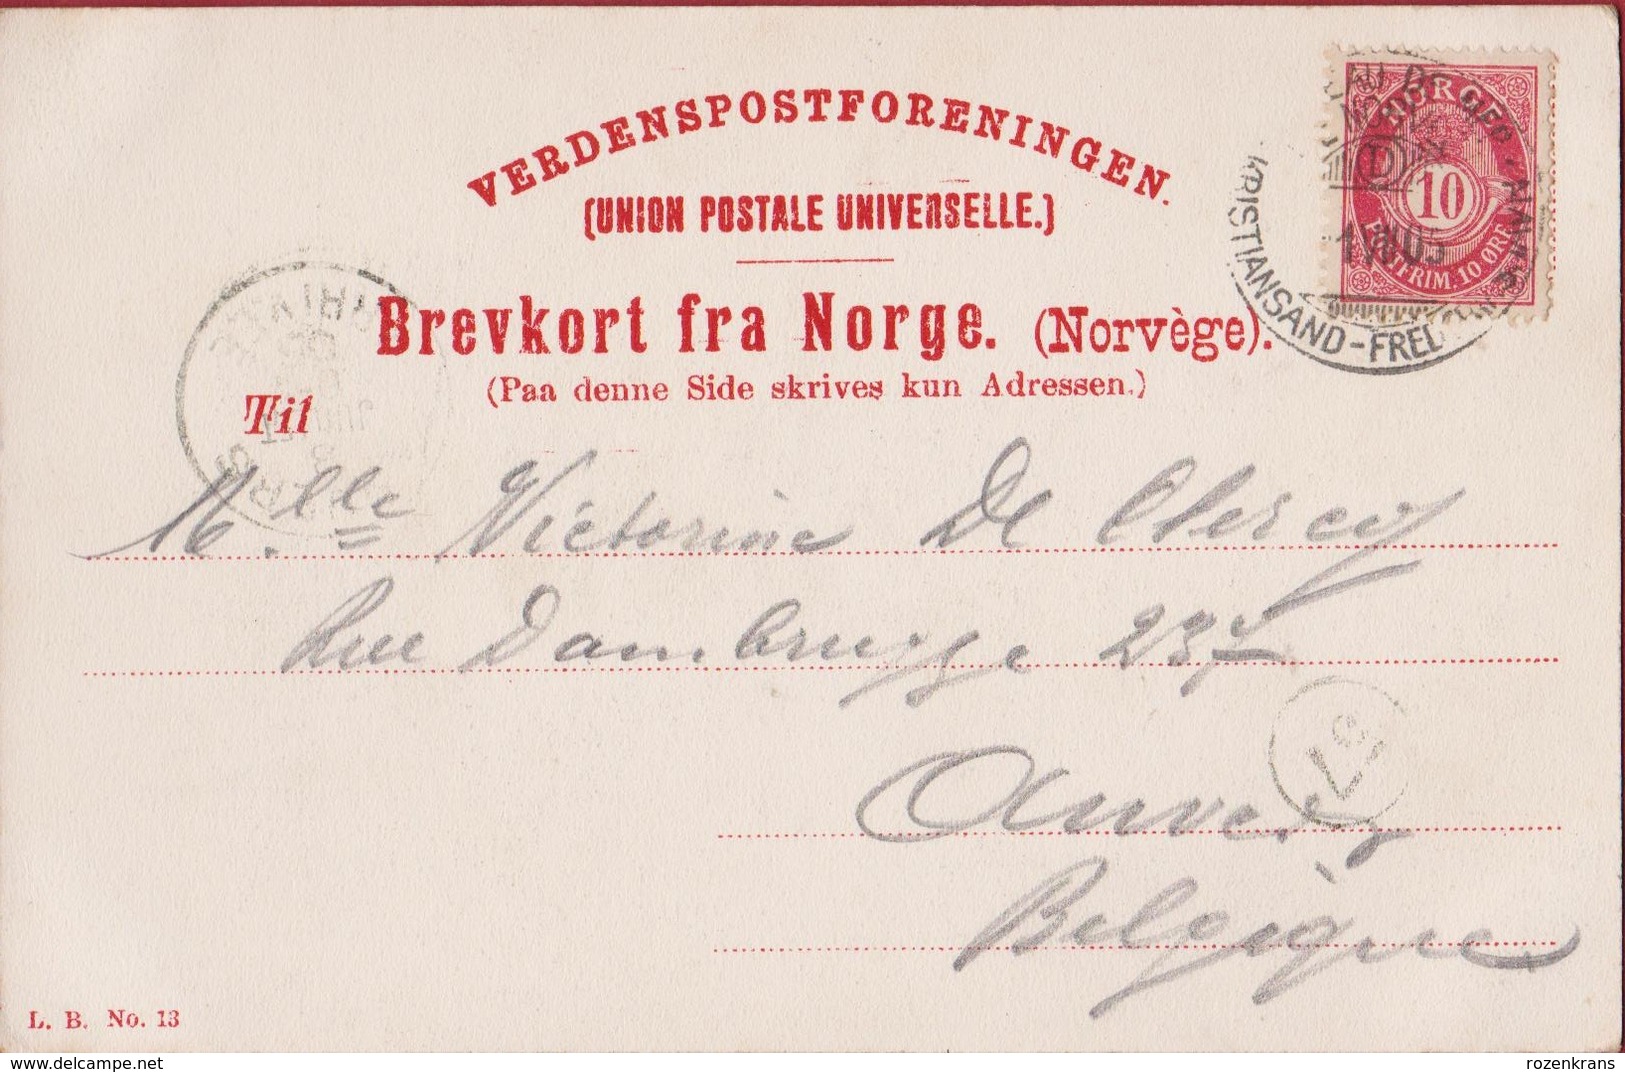 VERDENSPOSTFORENINGEN.
(UNION POSTALE UNIVERSELLE.)
Brevkort fra Norge. (Norvège).
(Paa denne Side skrives kun Adressen.)
Til
NORGE
10
FRIM. 10 ØRE
KRISTIANSAND-FRED
M.lle Victorine De Clercq
Rue Dambrugge 237
Anvers
Belgique
37
L. B. No. 13
delcampe.net
rozenkrans